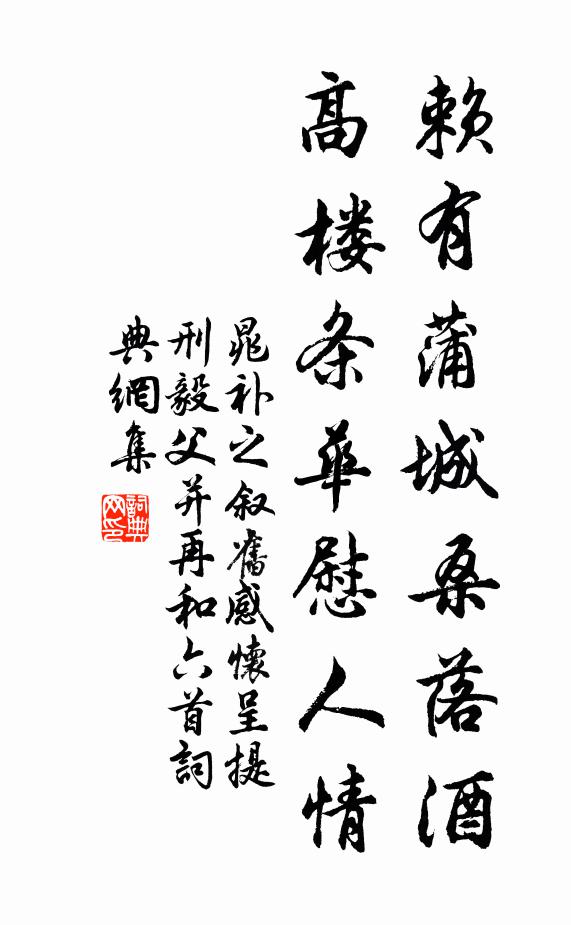 赖有蒲城桑落酒
高楼条华慰人情
晁补之叙旧感怀呈提
刑毅父并再和六首词
典網集
詞典
网印